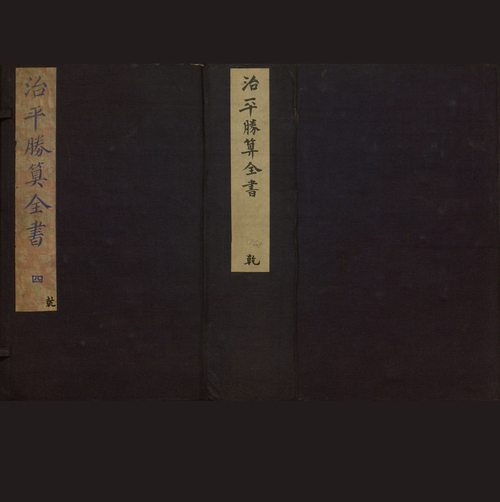 治平勝算全書
四
乾
治平勝算全書
乾